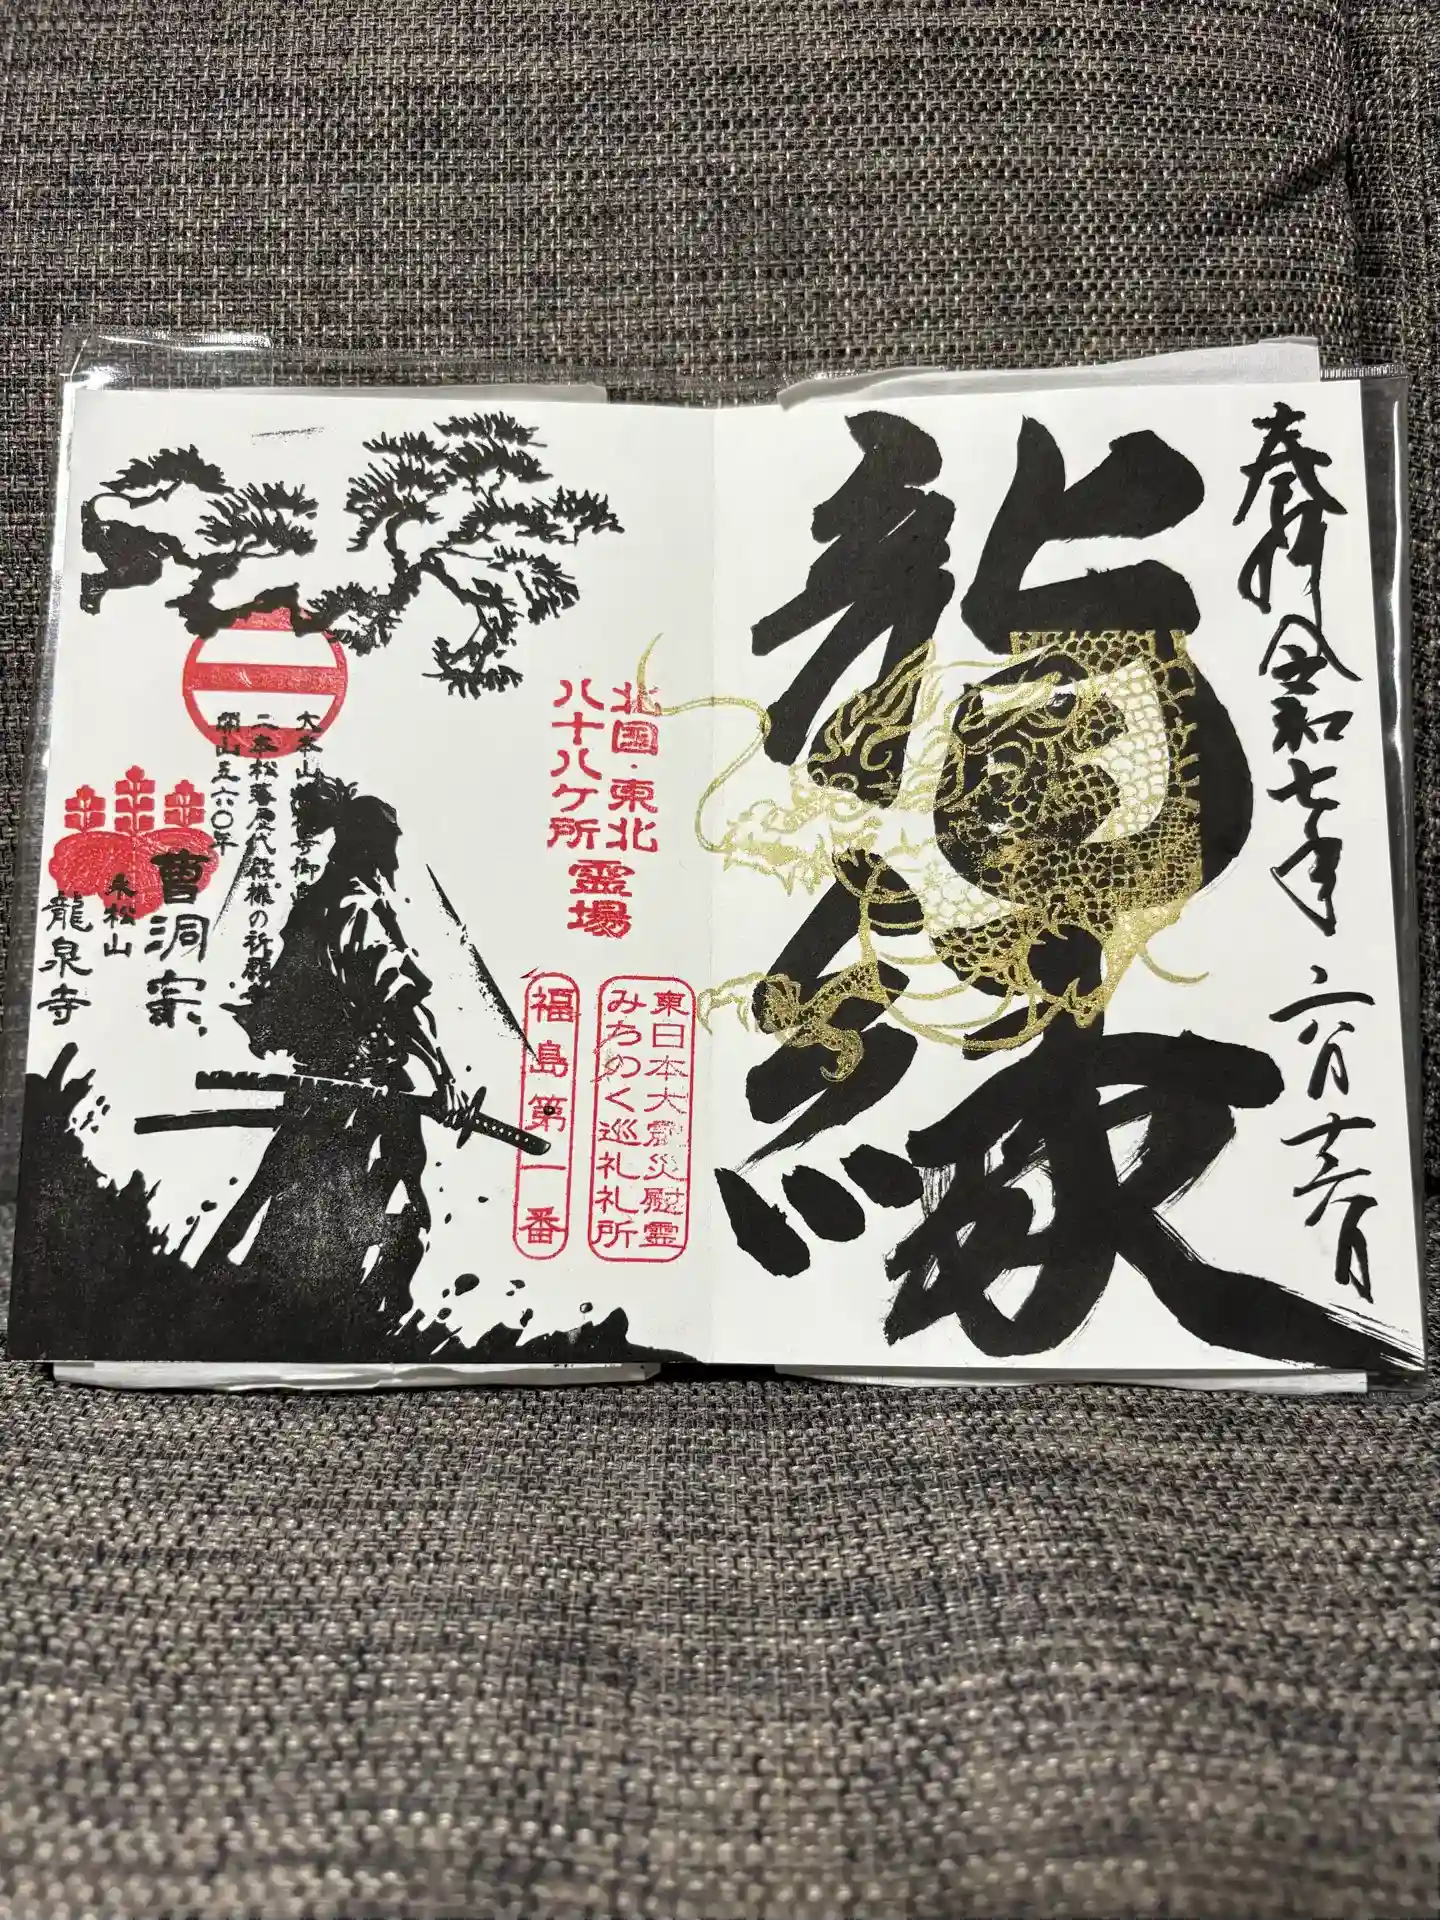 奉拝 令和七年 六月十六日
龍縁
東日本大震災慰霊
みちのく巡礼札所
福島第一番
北国・東北
八十八ケ所
霊場
大本山
二本松藩歴代殿様の祈願
開山五六〇年
曹洞宗
永松山
龍泉寺